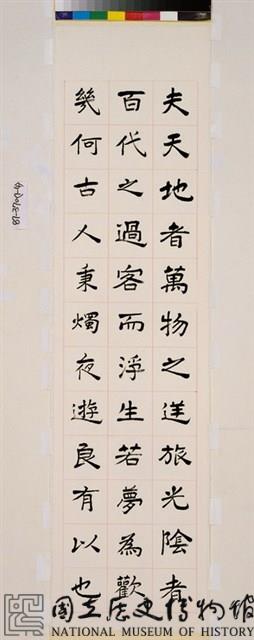 夫天地者萬物之逆旅光陰者
百代之過客而浮生若夢為歡
幾何古人秉燭夜遊良有以也
國立歷史博物館
NATIONAL MUSEUM OF HISTORY